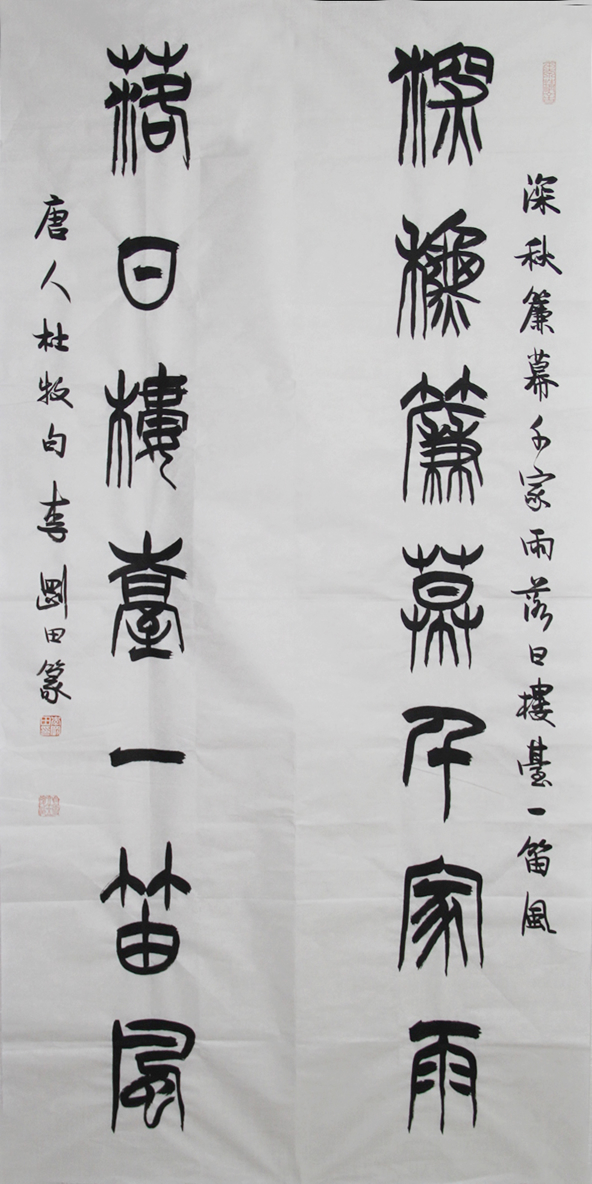 深秋簾幕千家雨落日樓臺一笛風
深秋簾幕千家雨
落日樓臺一笛風
唐人杜牧句李剛田篆